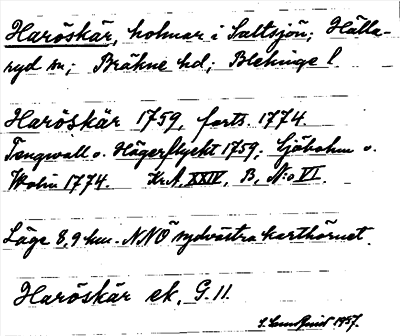 Haröskär, holmar i Saltsjön; Hälla-
ryd sn; Bräkne hd; Blekinge l.
Haröskär 1759, forts. 1774
Tengwall o. Hägerflycht 1759; Sjöbohm o.
Wohn 1774. Kr.A. XXIV, B, No VI.
Läge 8,9 km. NNÖ sydvästra karthörnet.
Haröskär ek. G. 11.
1957.